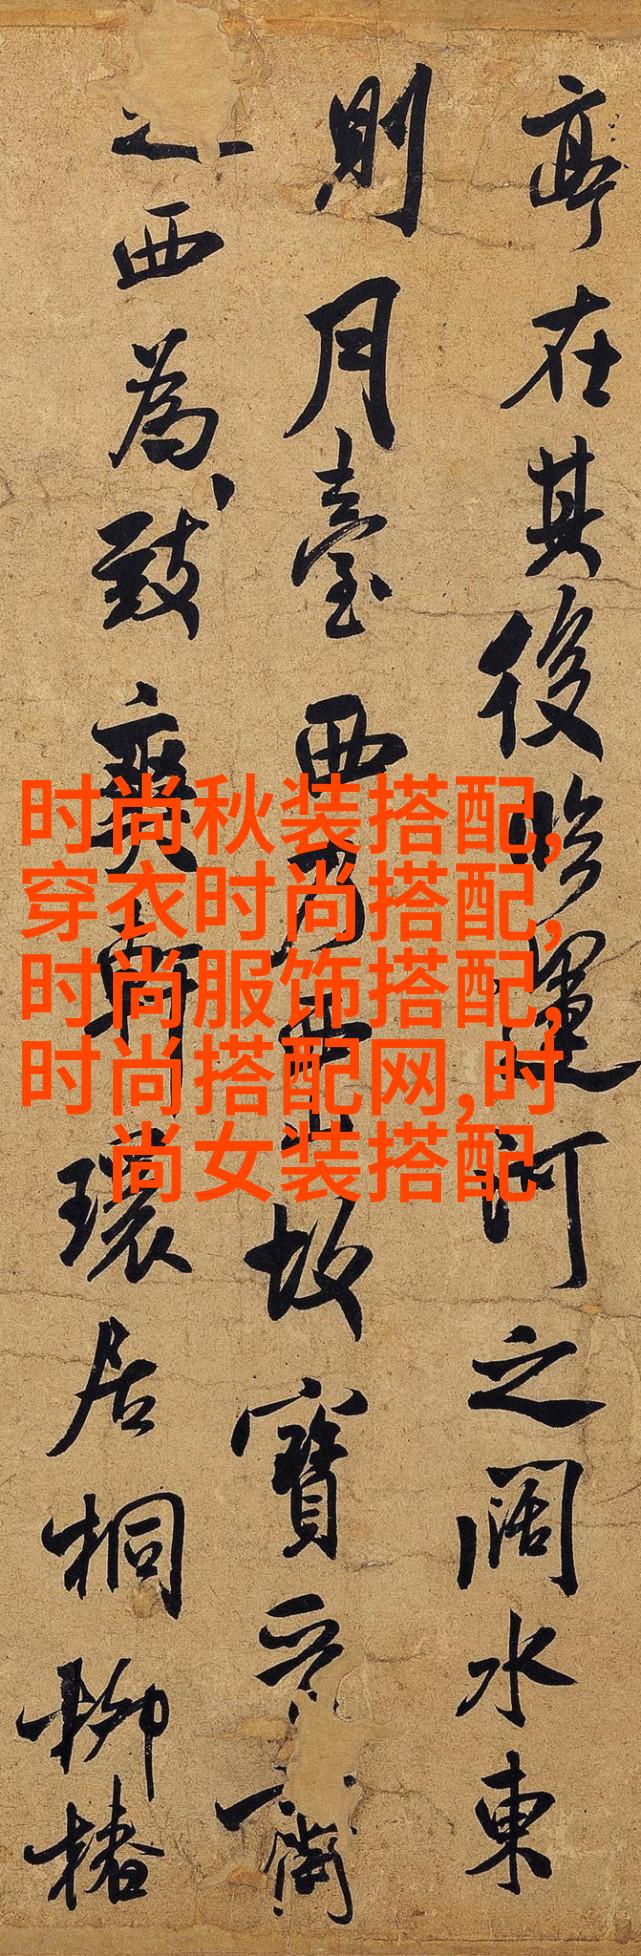 亭在其後臨運河之闊水東
則月臺西乃西山故寶晉齋
之西為致爽軒環居桐柳椿
时尚秋装搭配,
穿衣时尚搭配,
时尚服饰搭配,
时尚搭配网,时
尚女装搭配